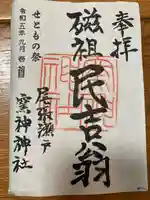 奉拝
磁祖 民吉翁
尾張瀬戸
窯神神社
せともの祭
令和五年九月